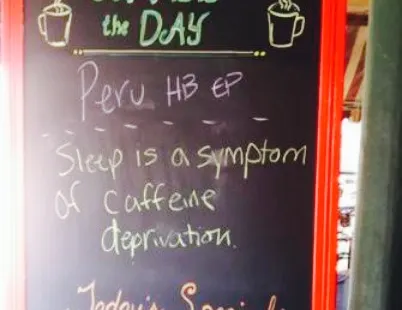 the DAY
Peru HB EP
Sleep is a symptom
of caffeine
deprivation.
Today's